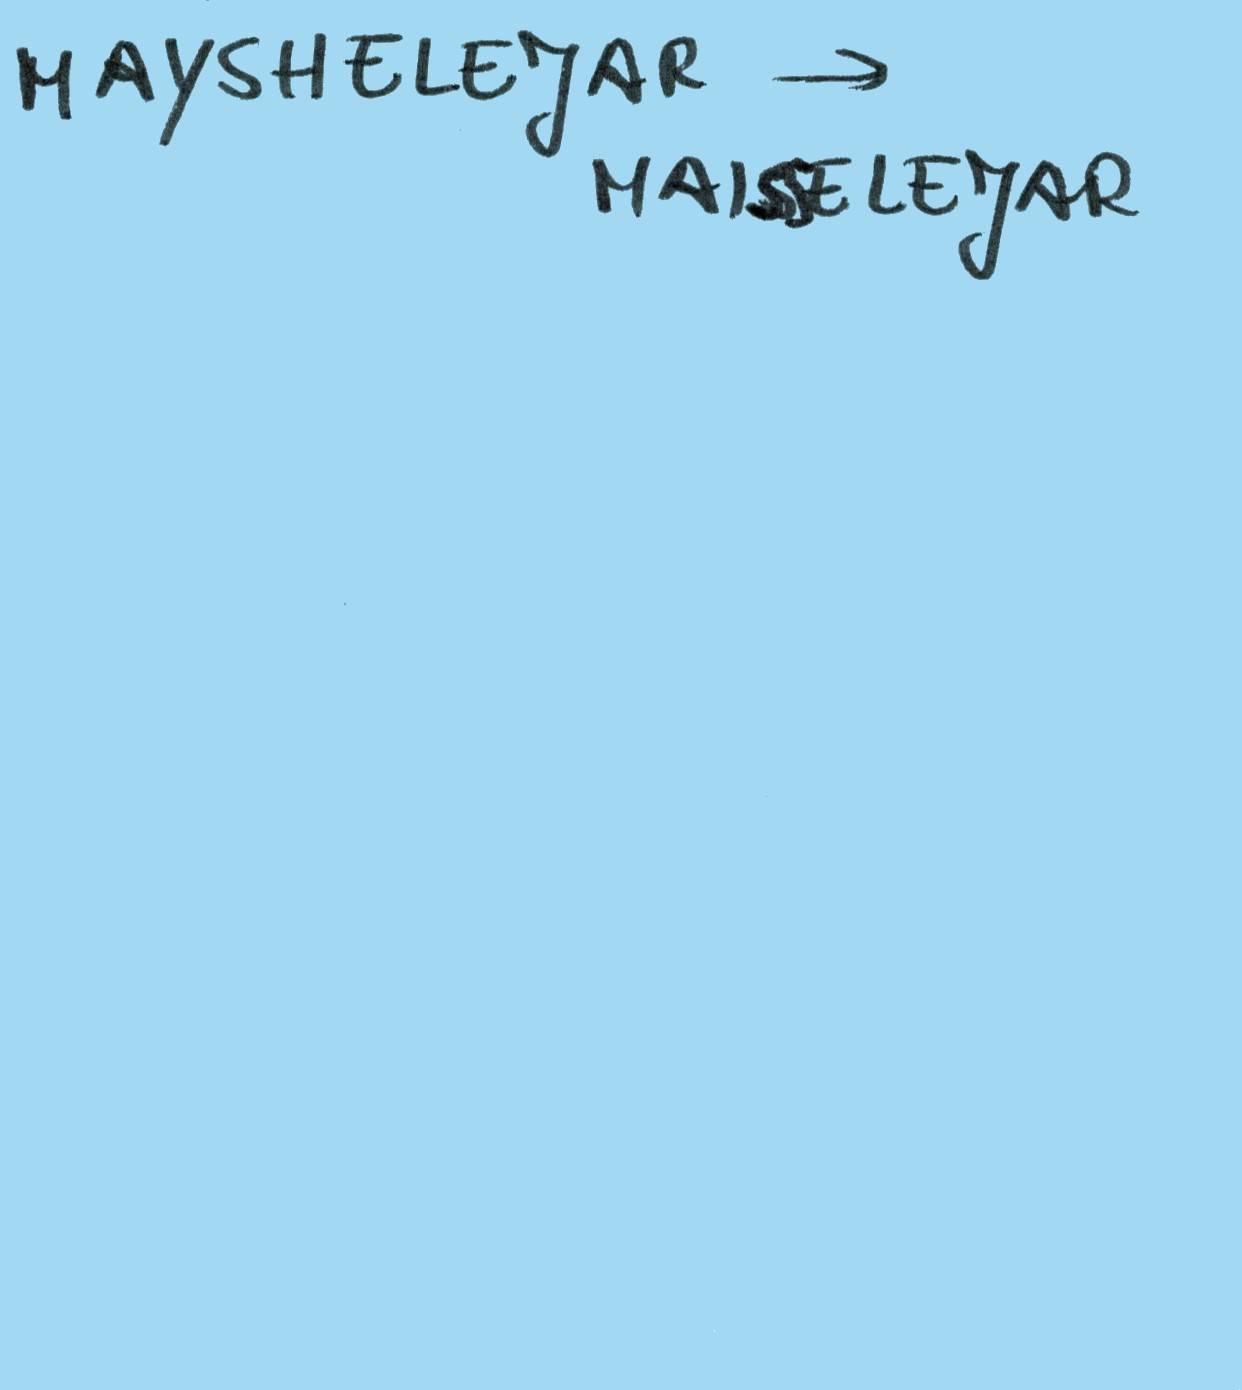 MAYSHELEJAR →
MAISSELEJAR